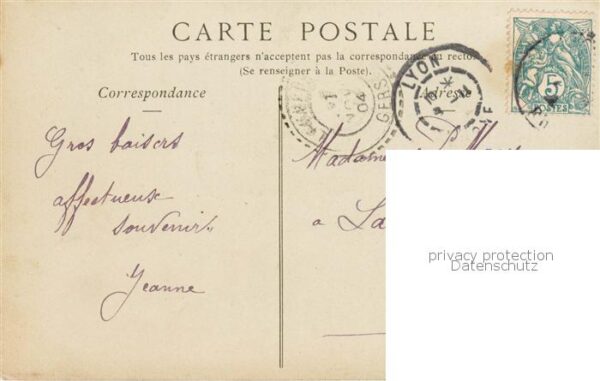 CARTE POSTALE
Tous les pays étrangers n'acceptent pas la correspondance au recto
(Se renseigner à la Poste).
Correspondance
Adresse
LYON
GERS
04
5
Gros baisers
affectueux
souvenirs
Jeanne
Madame
a La
privacy protection
Datenschutz